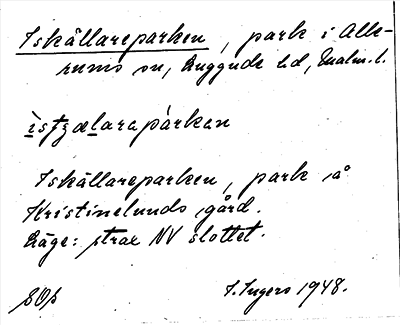 Iskällareparken, park i Alle-
rums sn, Luggude hd, Malm. l.
ìstʒælarapárkan
Iskällareparken, park å
Kristinelunds gård.
Läge: strax NV slottet.
I. Ingers 1948.